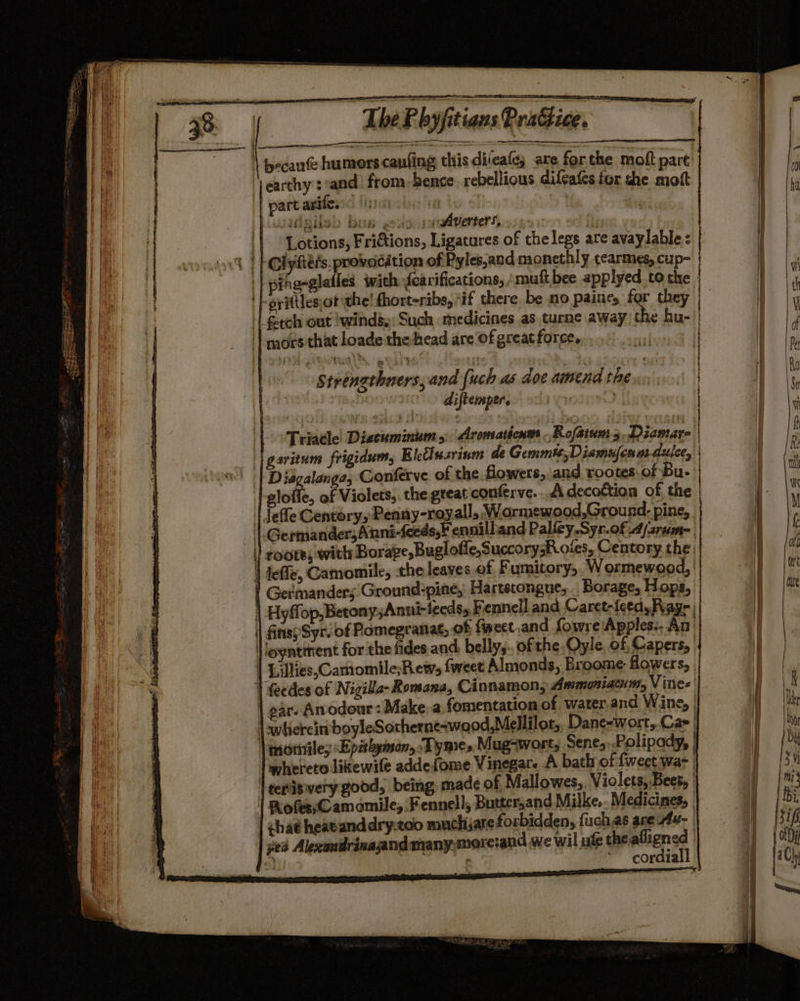 38 The Phyſitians Practice.
becauſe humors cauſing this diſeaſe, are for the moſt part
earthy : and from hence rebellious diſeaſes for the moſt
part ariſe.
Averters,
Lotions, Frictions, Ligatures of the legs are avaylable :
Clyſters. provocation of Pyles, and monethly tearmes, cup-
ping-glaſſes with ſcarifications, muſt bee applyed to the
griſtles of the ſhort-ribs, if there be no paine, for they
fetch out winds, Such medicines as turne away the hu-
mors that loade the head are of great force.
Strengthners, and ſuch as doe amend the
diſtemper.
Triacle Diacuminum, Aromaticum Roſatum, Diamar-
garitum frigidum, Electuarium de Gemmis, Diamuſcum dulce,
Diagalanga, Conſerve of the flowers, and rootes of Bu-
gloſſe, of Violets, the great conſerve. A decoction of the
leſſe Centory, Penny-royall, Wormewood, Ground-pine,
Germander, Anni-ſeeds, Fennill and Palſey. Syr. of Aſarum-
roote, with Borage, Bugloſſe, Succory, Roſes, Centory the
leſſe, Camomile, the leaves of Fumitory, Wormewood,
Germander, Ground-pine, Hartstongue, Borage, Hops,
Hyſſop, Betony, Anni-ſeeds, Fennell and Caret-ſeed, Ray-
ſins, Syr. of Pomegranat, of ſweet and ſowre Apples. An
oyntment for the ſides and belly, of the Oyle of Capers,
Lillies, Camomile, Rew, ſweet Almonds, Broome flowers,
ſeedes of Nigilla-Romana, Cinnamon, Ammoniacum, Vine-
gar. An odour : Make a fomentation of water and Wine,
wherein boyle Sotherne-wood, Mellilot, Dane-wort, Ca-
momile, Epithymon, Tyme, Mug-wort, Sene, Polipody,
whereto likewiſe adde ſome Vinegar. A bath of ſweet wa-
ter is very good, being made of Mallowes, Violets, Bees,
Roſes, Camomile, Fennell, Butter, and Milke. Medicines,
that heat and dry too much, are forbidden, ſuch as are Au-
rea Alexandrina, and many more : and we wil uſe the aſſigned
cordiall